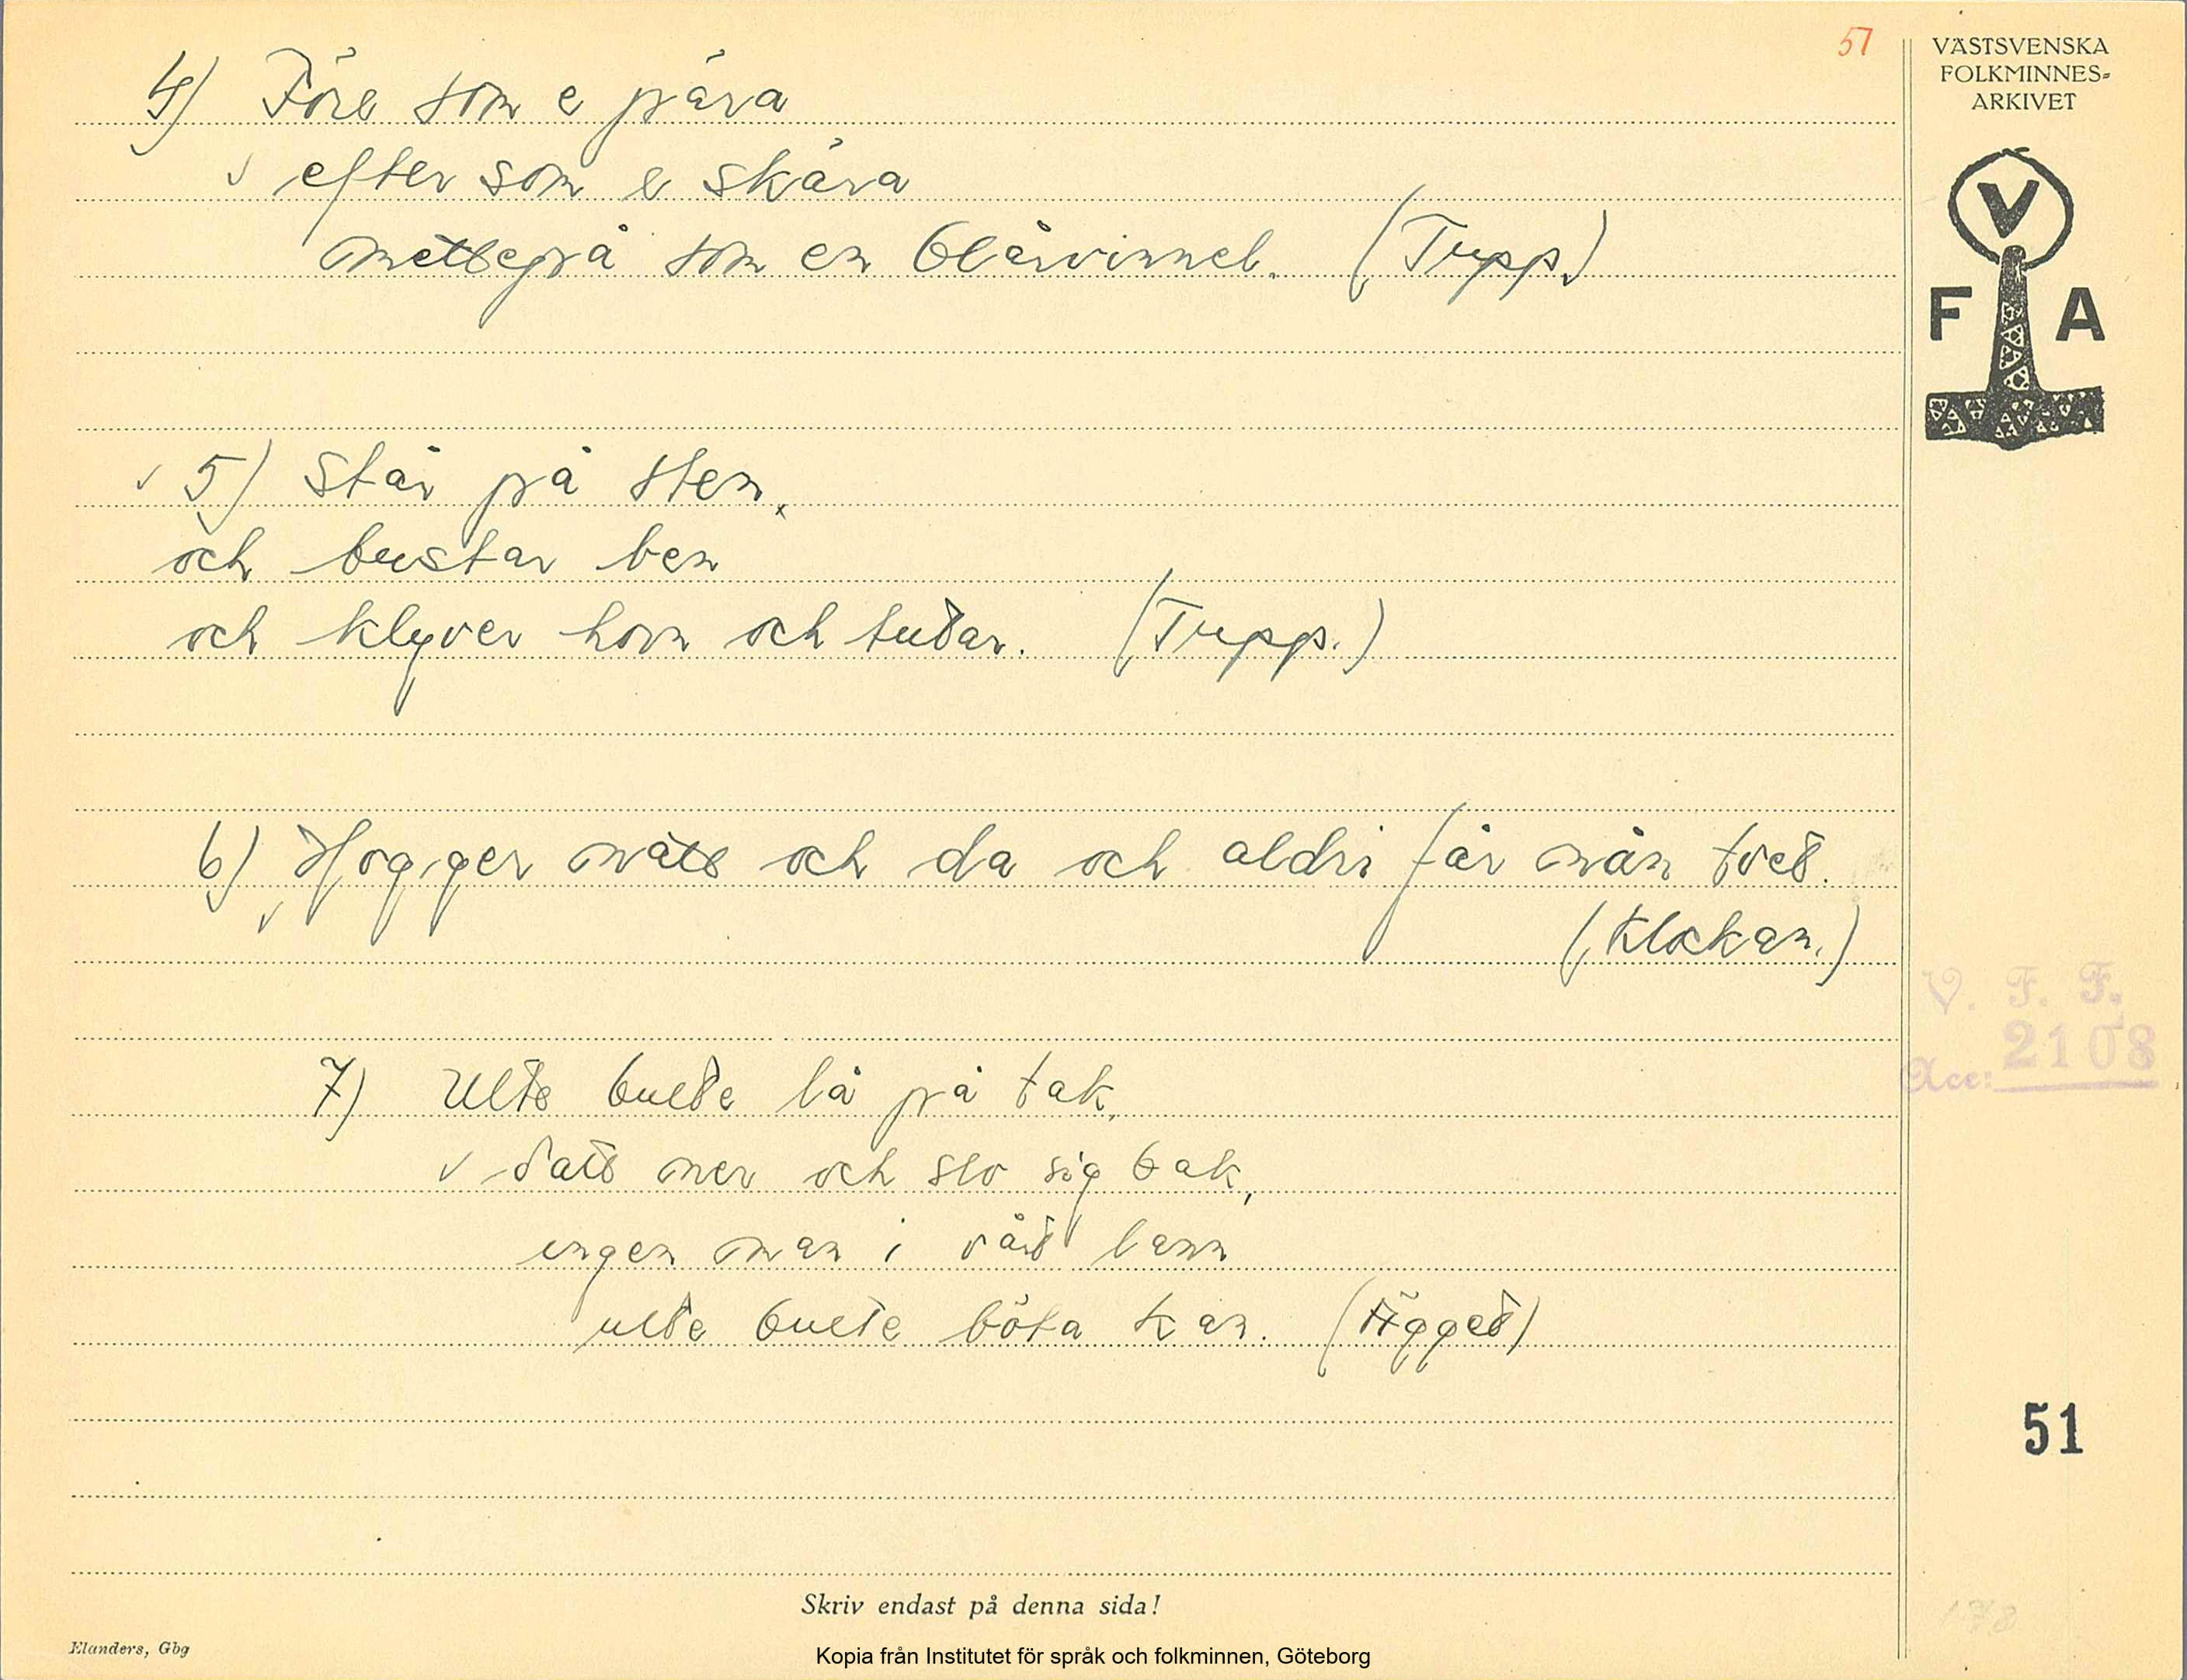 57
VÄSTSVENSKA
FOLKMINNES=
ARKIVET
V
F A
4) Före som e pära
efter som e skära
mettepå som en blårvinnel. (Tupp.)
5) Står på sten,
och bustar ben
och klyver horn och tutar. (Tupp.)
6) Hogger nått och da och aldri får nån tvet.
(Klockan.)
V. F. F.
Acc: 2108
7) Ulte bulte lå på tak,
datt ner och slo sig bak,
ingen man i vårt lann
ulte bulte böta kan. (Ägget)
51
Skriv endast på denna sida!
Elanders, Gbg
Kopia från Institutet för språk och folkminnen, Göteborg